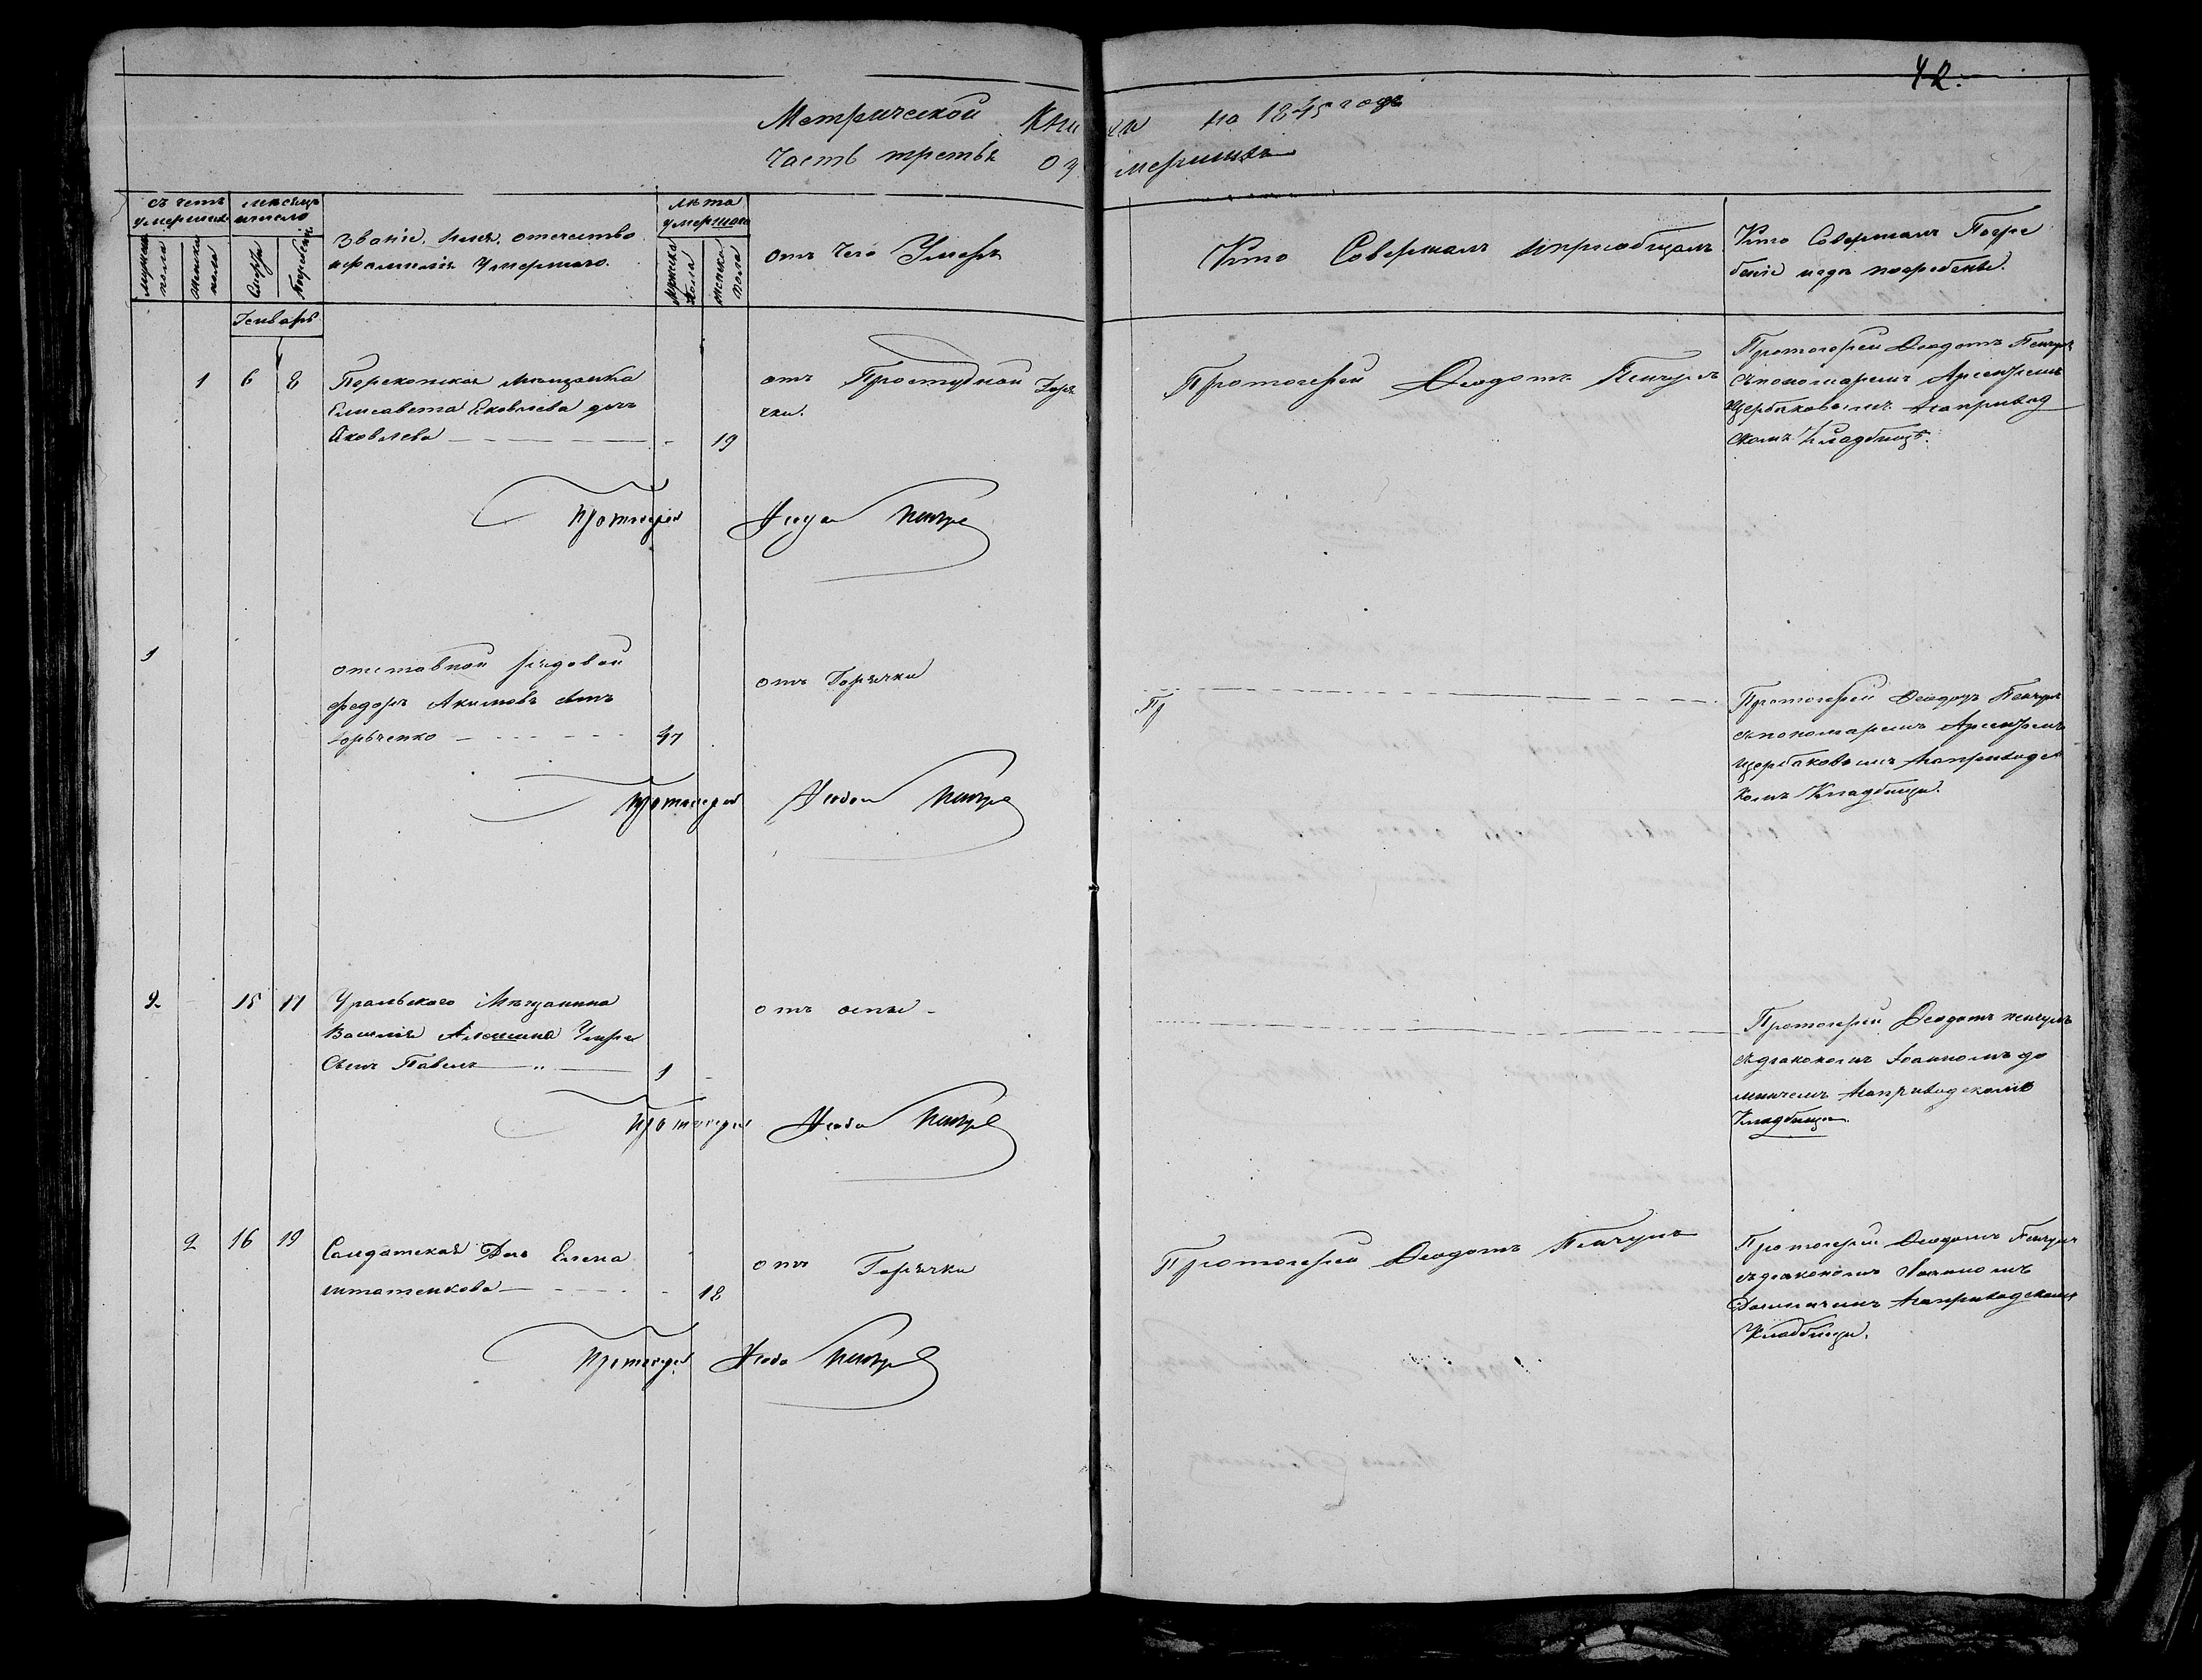 42.
Метрической Книги на 1845 годъ
Часть третья о умершихъ
счетъ умершихъ
мужеска пола
женска пола
месяцъ и число
Смерти
Погребенія
Званіе, имя, отечество
и фамилія Умершаго.
лѣта умершаго
мужеска пола
женска пола
отъ чего Умеръ
Кто Совершалъ и приобщалъ
Кто Совершалъ Погре
беніе и где погребены.
Генварь
1 6 8
Перекопская мещанка
Елисавета Яковлева дочь
Яковлева 19
отъ Простудной Горя
чки.
Протоіерей Феодотъ Пенчулъ
Протоіерей Феодотъ Пенчулъ
съ пономаремъ Арсеніемъ
Щербаковымъ на приход
скомъ Кладбище.
Протоіерей Феодотъ Пенчулъ
1
отставной рядовой
Федоръ Акимовъ сынъ
47
отъ Горячки
Пр
Протоіерей Феодотъ Пенчулъ
съ пономаремъ Арсеніемъ
Щербаковымъ на приходс
комъ Кладбище.
Протоіерей Феодотъ Пенчулъ
2 15 17
Уральскаго Мѣщанина
Василія
Сынъ Павелъ 1
отъ оспы
Протоіерей Феодотъ Пенчулъ
съ діакономъ Іоанномъ До
на приходскомъ
Кладбище.
Протоіерей Феодотъ Пенчулъ
2 16 19
Солдатская Дочь Елена
18
отъ Горячки
Протоіерей Феодотъ Пенчулъ
Протоіерей Феодотъ Пенчулъ
съ діакономъ Іоанномъ
на приходскомъ
Кладбище.
Протоіерей Феодотъ Пенчулъ